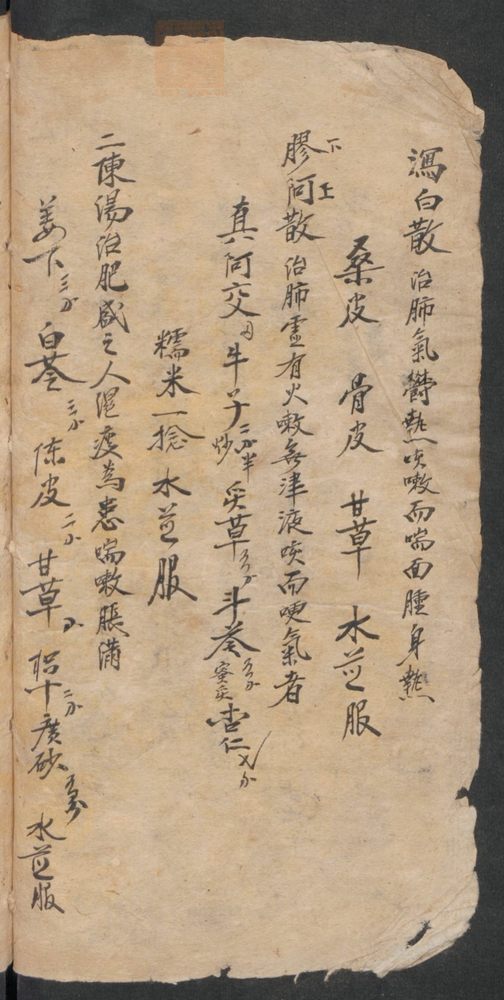 瀉白散 治肺氣鬱熱咳嗽而喘面腫身熱
桑皮 骨皮 甘草 水煎服
膠阿散 治肺虛有火嗽無津液咳而哽氣者
真阿交 牛子 炒 二分半 炙草 斗苓 蜜炙 杏仁
糯米一捻 水煎服
二陳湯治肥盛之人濕痰為患喘嗽脹滿
姜下 三分 白苓 三分 陳皮 二分 甘草 二分 廣砂 水煎服